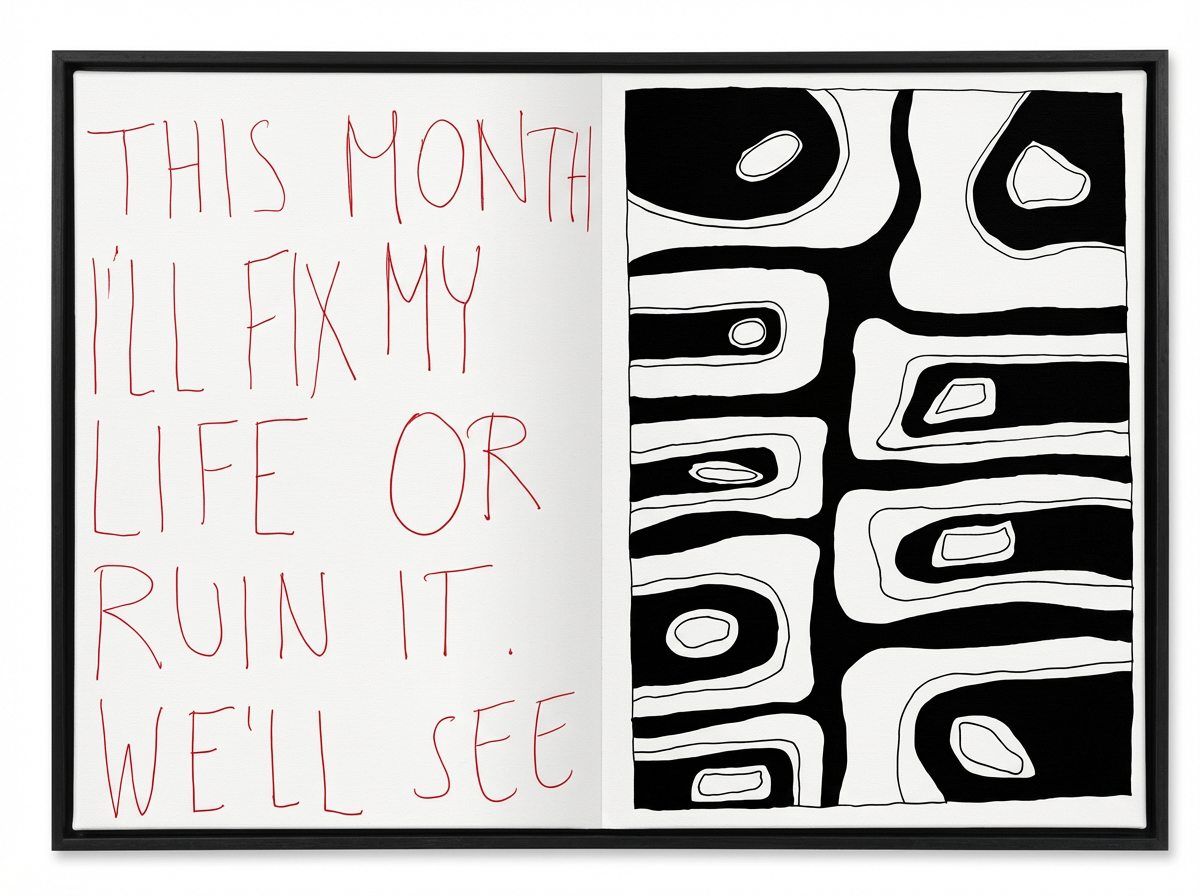 THIS MONTH
I'LL FIX MY
LIFE OR
RUIN IT.
WE'LL SEE